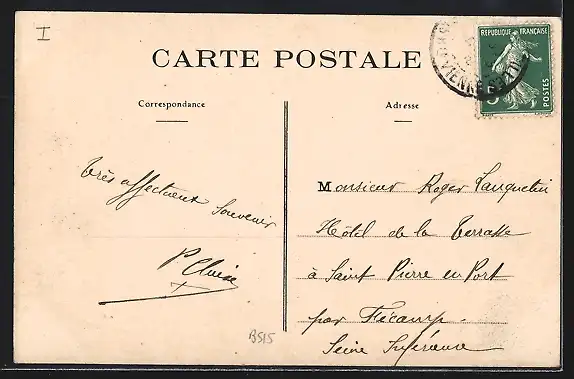 I
CARTE POSTALE
RÉPUBLIQUE FRANÇAISE
POSTES
Correspondance
Adresse
très affectueux souvenir
Monsieur Roger Lanquetin
Hôtel de la Terrasse
à Saint Pierre en Port
par Fécamp.
Seine Inférieure
B515